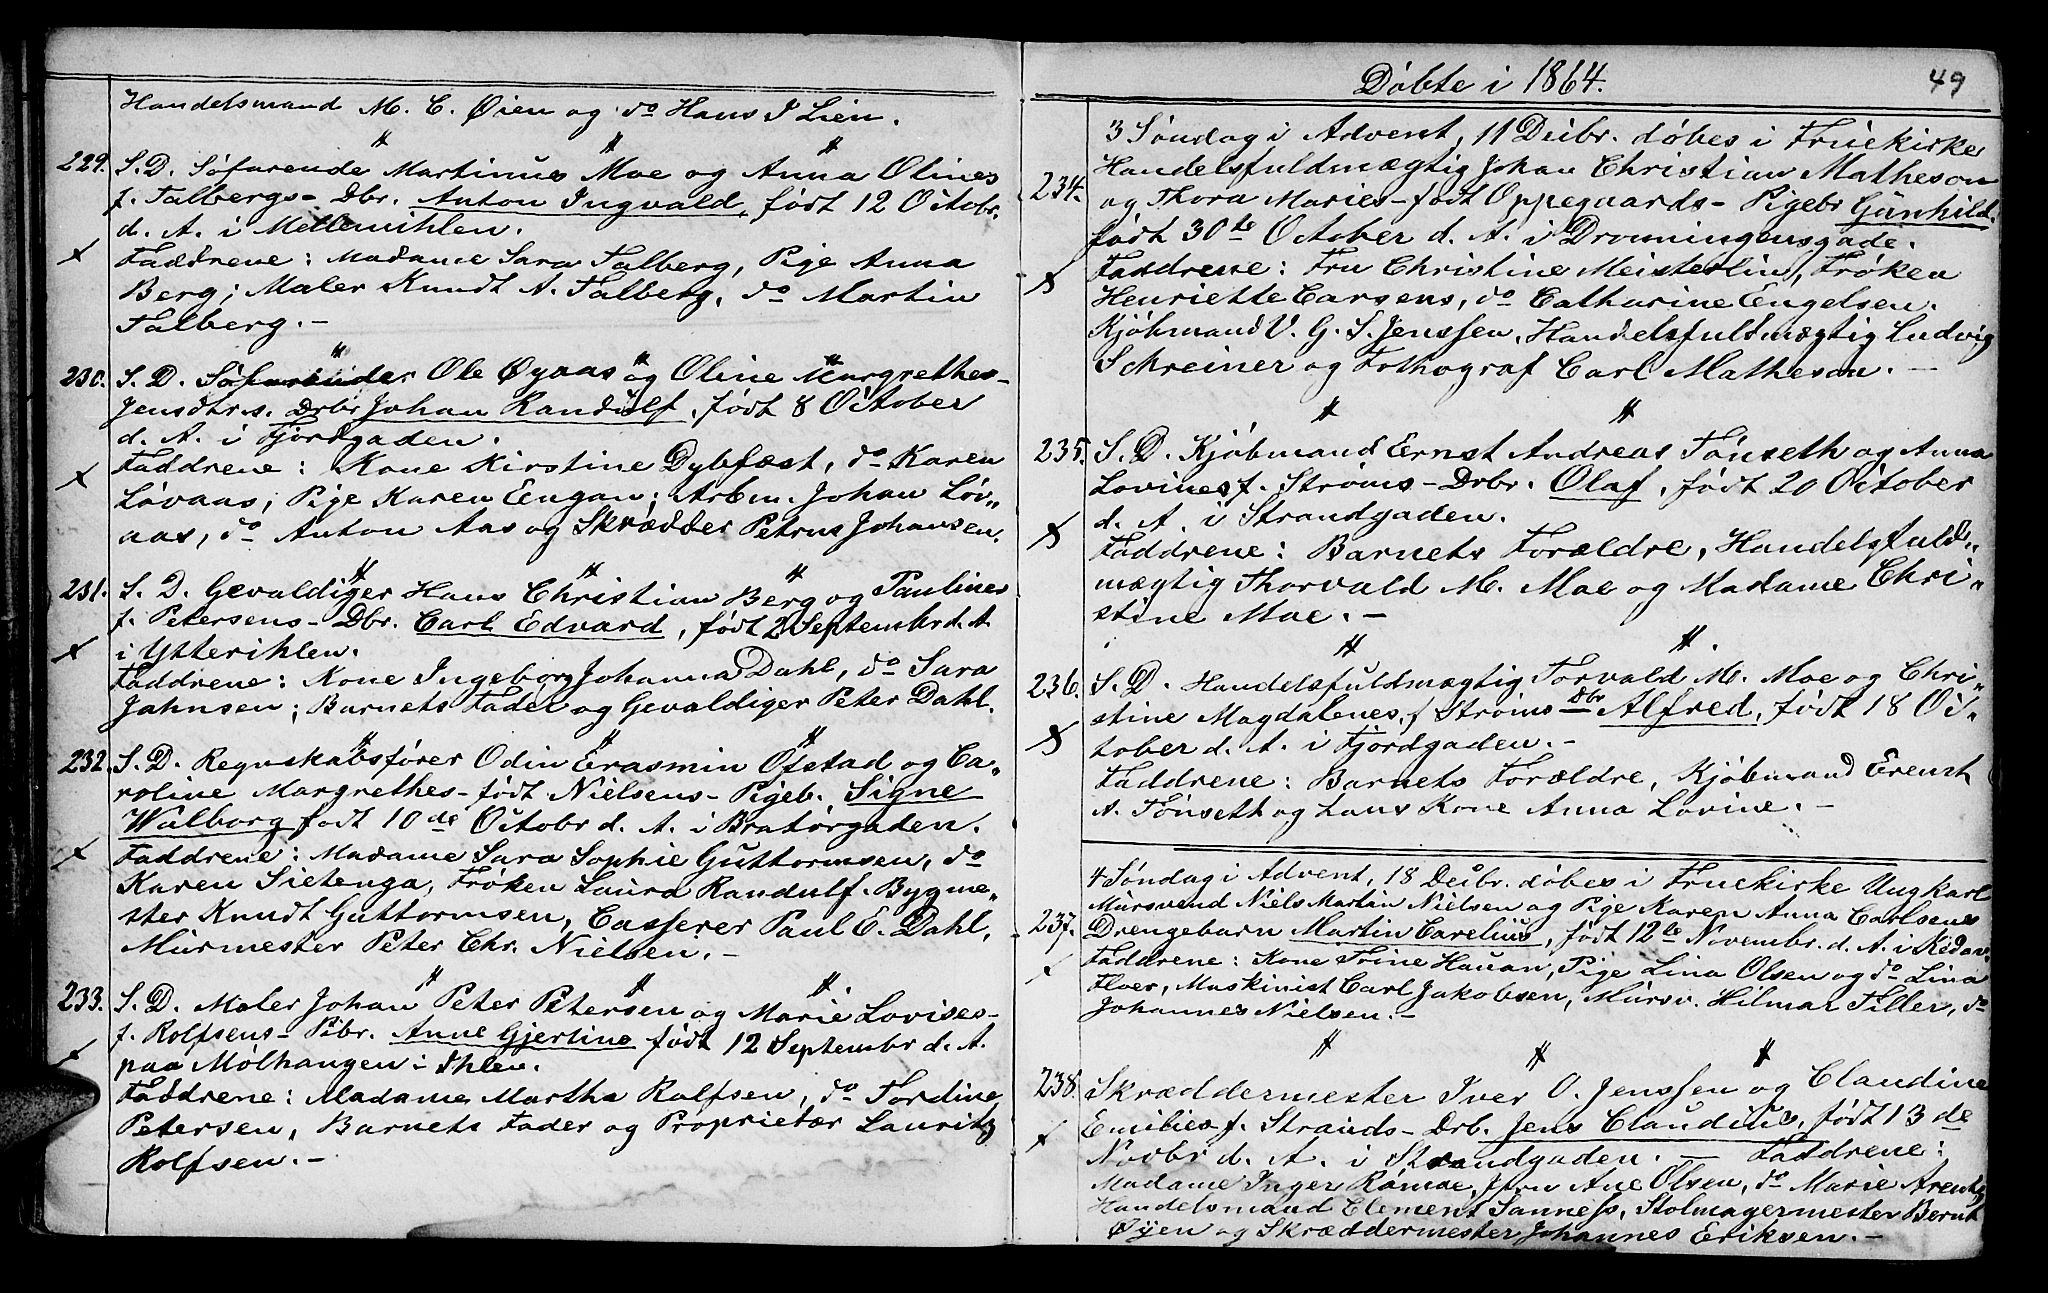 Handelsmand M. C. Øien og do Hans J Lien.
229. S. D. Søfarende Martinus Moe og Anna Olines
f. Talbergs - Dbr. Anton Ingvald, født 12 Octobr.
d. A. i Mellemihlen.
Faddrene: Madame Sara Talberg, Pige Anna
Berg; Maler Knudt A. Talberg, do Martin
Talberg. -
230. S. D. Søfarende Ole Øyaas og Oline Margrethes-
Jensdtrs. Drbr Johan Randulf, født 8 October
d. A. i Fjordgaden.
Faddrene: Kone Kirstine Dybfæst, do Karen
Løvaas; Pige Karen Engan; Arbm. Johan Løv„
aas, do Anton Aas og Skrædder Petrus Johansen.
231. S. D. Gevaldiger Hans Christian Berg og Paulines
f. Petersens - Dbr. Carl Edvard, født 2 Septembr d. A.
i Ytterihlen.
Faddrene: Kone Ingeborg Johanna Dahl, do Sara
Jahnsen; Barnets Fader og Gevaldiger Peter Dahl.
232. S. D. Regnskabsfører Odin Erasmin Ofstad og Ca„
roline Margrethes - født Nielsens - Pigeb. Signe
Walborg født 10de Octobr d. A. i Bratørgaden.
Faddrene: Madame Sara Sophie Guttormsen, do
Karen Sietenga, Frøken Laura Randulf. Bygme„
ster Knudt Guttormsen, Casserer Paul E. Dahl,
Murmester Peter Chr. Nielsen. -
233. S. D. Maler Johan Peter Petersen og Marie Lovises-
f. Rolfsens - Pibr. Anne Gjertine født 12 Septembr d. A.
paa Mølhaugen i Ihlen.
Faddrene: Madame Martha Rolfsen, do Tordine
Petersen, Barnets Fader og Proprietær Lauritz
Rolfsen. -
Døbte i 1864.
49
3 Søndag i Advent, 11 Decbr. døbes i Fruekirke
234. Handelsfuldmægtig Johan Christian Matheson
og Thora Maries - født Oppegaards - Pigebr Gunhild.
født 30te October d. A. i Dronningensgade.
Faddrene: Fru Christine Meisterlin, Frøken
Henriette Carsens, do Catharine Engelsen.
Kjøbmand V. G. S. Jenssen, Handelsfuldmægtig Ludvig
Schreiner og Fothograf Carl Matheson. -
235. S. D. Kjøbmand Ernst Andreas Tønseth og Anna
Lovines f. Strøms - Drbr. Olaf, født 20 October
d. A. i Strandgaden.
Faddrene: Barnets Forældre, Handelsfuld„
mægtig Thorvald M. Moe og Madame Chri„
stine Moe. -
236. S. D. Handelsfuldmægtig Torvald M. Moe og Chri„
stine Magdalenes, f Strøms Dbr Alfred, født 18 Oc„
tober d. A. i Fjordgaden. -
Faddrene: Barnets Forældre, Kjøbmand Ernst
A. Tønsett og hans Kone Anna Lovine. -
4 Søndag i Advent, 18 Decbr. døbes i Fruekirke Ungkarl
Mursvend Niels Martin Nielsen og Pige Karen Anna Carlsens
237. Drengebarn Martin Carelius, født 12te Novembr. d. A. i
Faddrene: Kone Trine Hauan, Pige Lina Olsen og do Lina
Floer, Maskinist Carl Jakobsen, Mursv. Hilmar Tiller, do
Johannes Nielsen. -
238. Skræddermester Iver O. Jenssen og Claudine
Emilies f. Strands - Drb. Jens Claudius, født 13de
Novbr d. A. i Strandgaden. - Faddrene:
Madame Inger Ramse, Ane Olsen, do Marie Arentz
Handelsmand Clement Sanness, Stolmagermester Bernt
Øyen og Skræddermester Johannes Eriksen. -